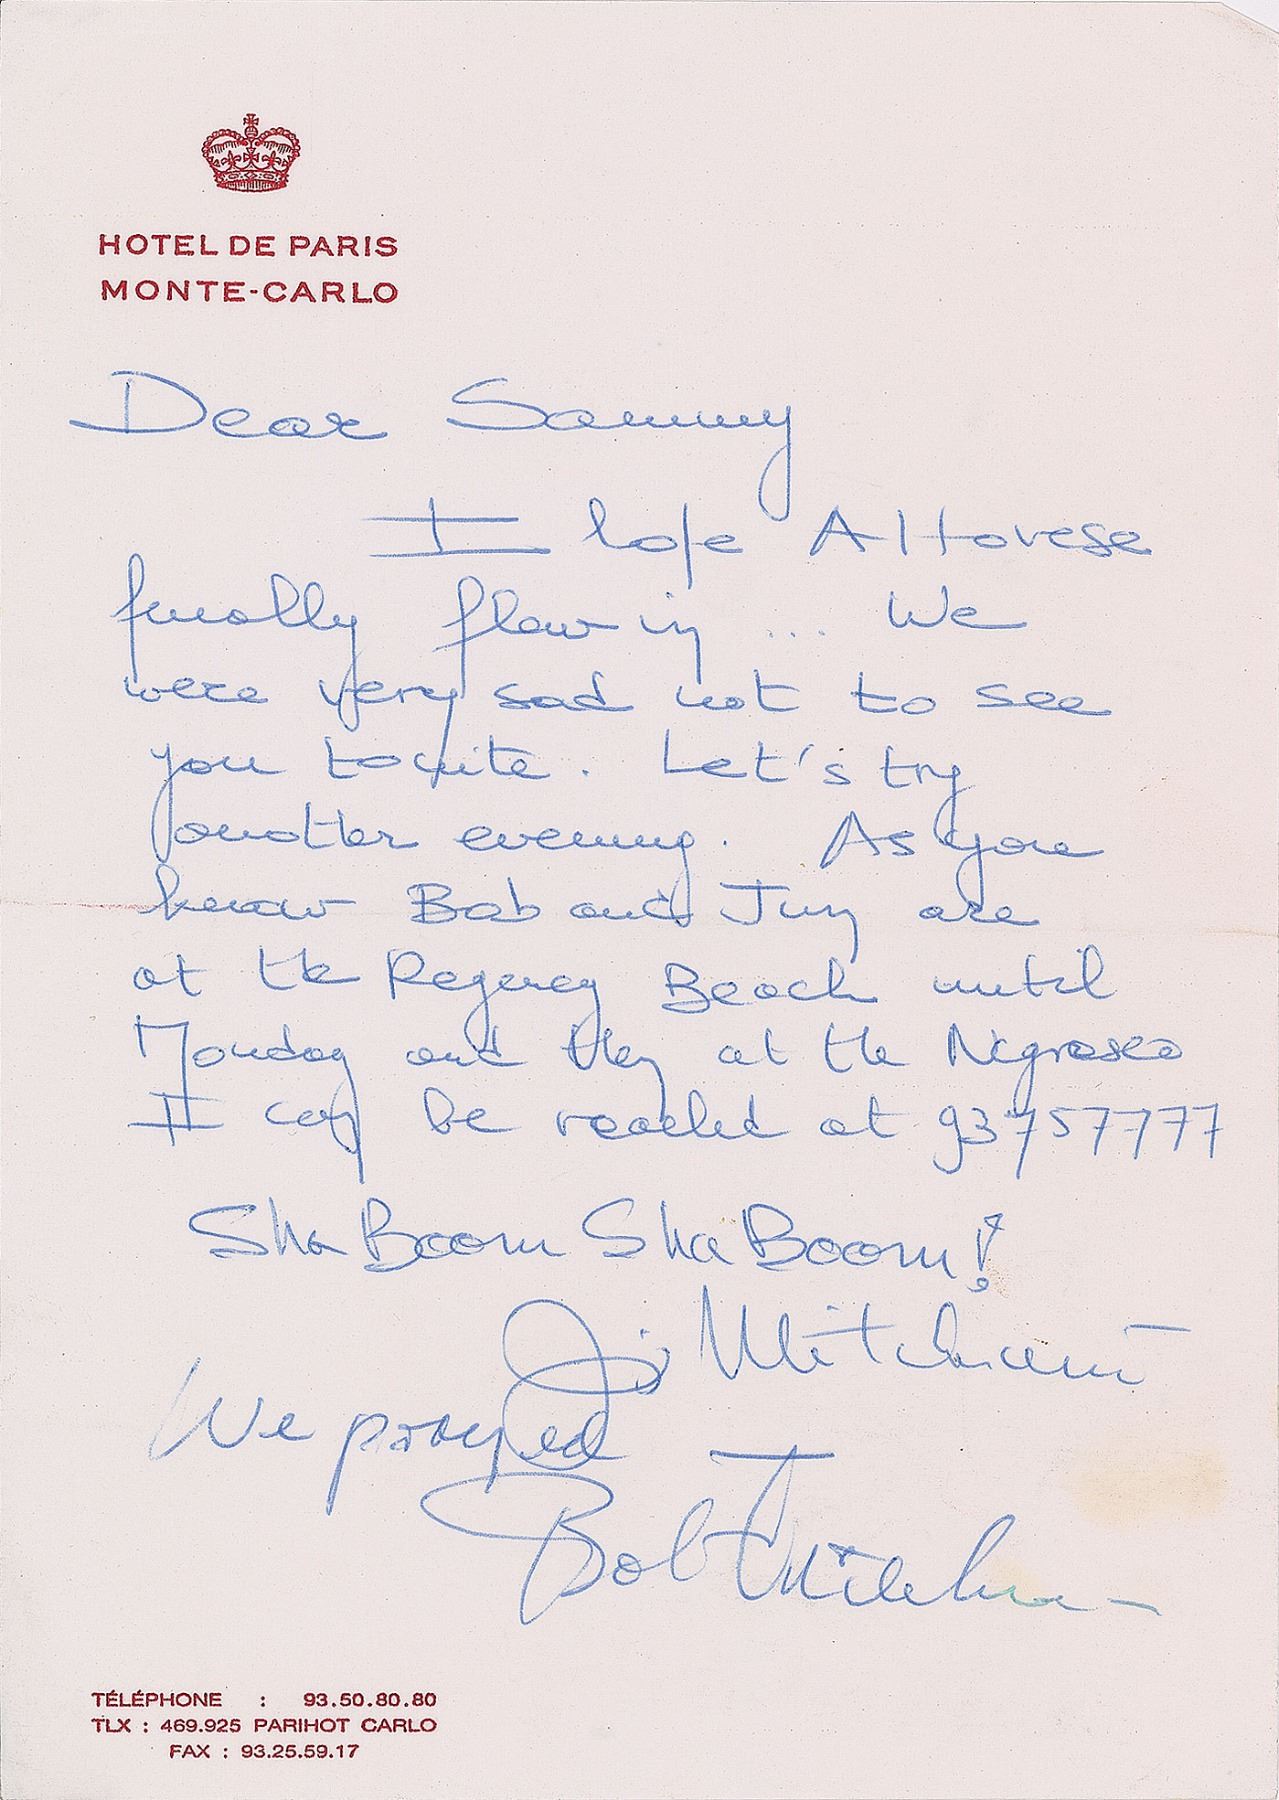 HOTEL DE PARIS
MONTE-CARLO
Dear Sammy
I hope Altovese
finally flew in ... We
were very sad not to see
you tonite. Let's try
another evening. As you
know Bob and Jim are
at the Regency Beach until
Monday and then at the Negresco
I can be reached at 93757777
Sha Boom Sha Boom!
Mitchum
We prayed
Bob Mitchum
TÉLÉPHONE : 93.50.80.80
TLX : 469.925 PARIHOT CARLO
FAX : 93.25.59.17